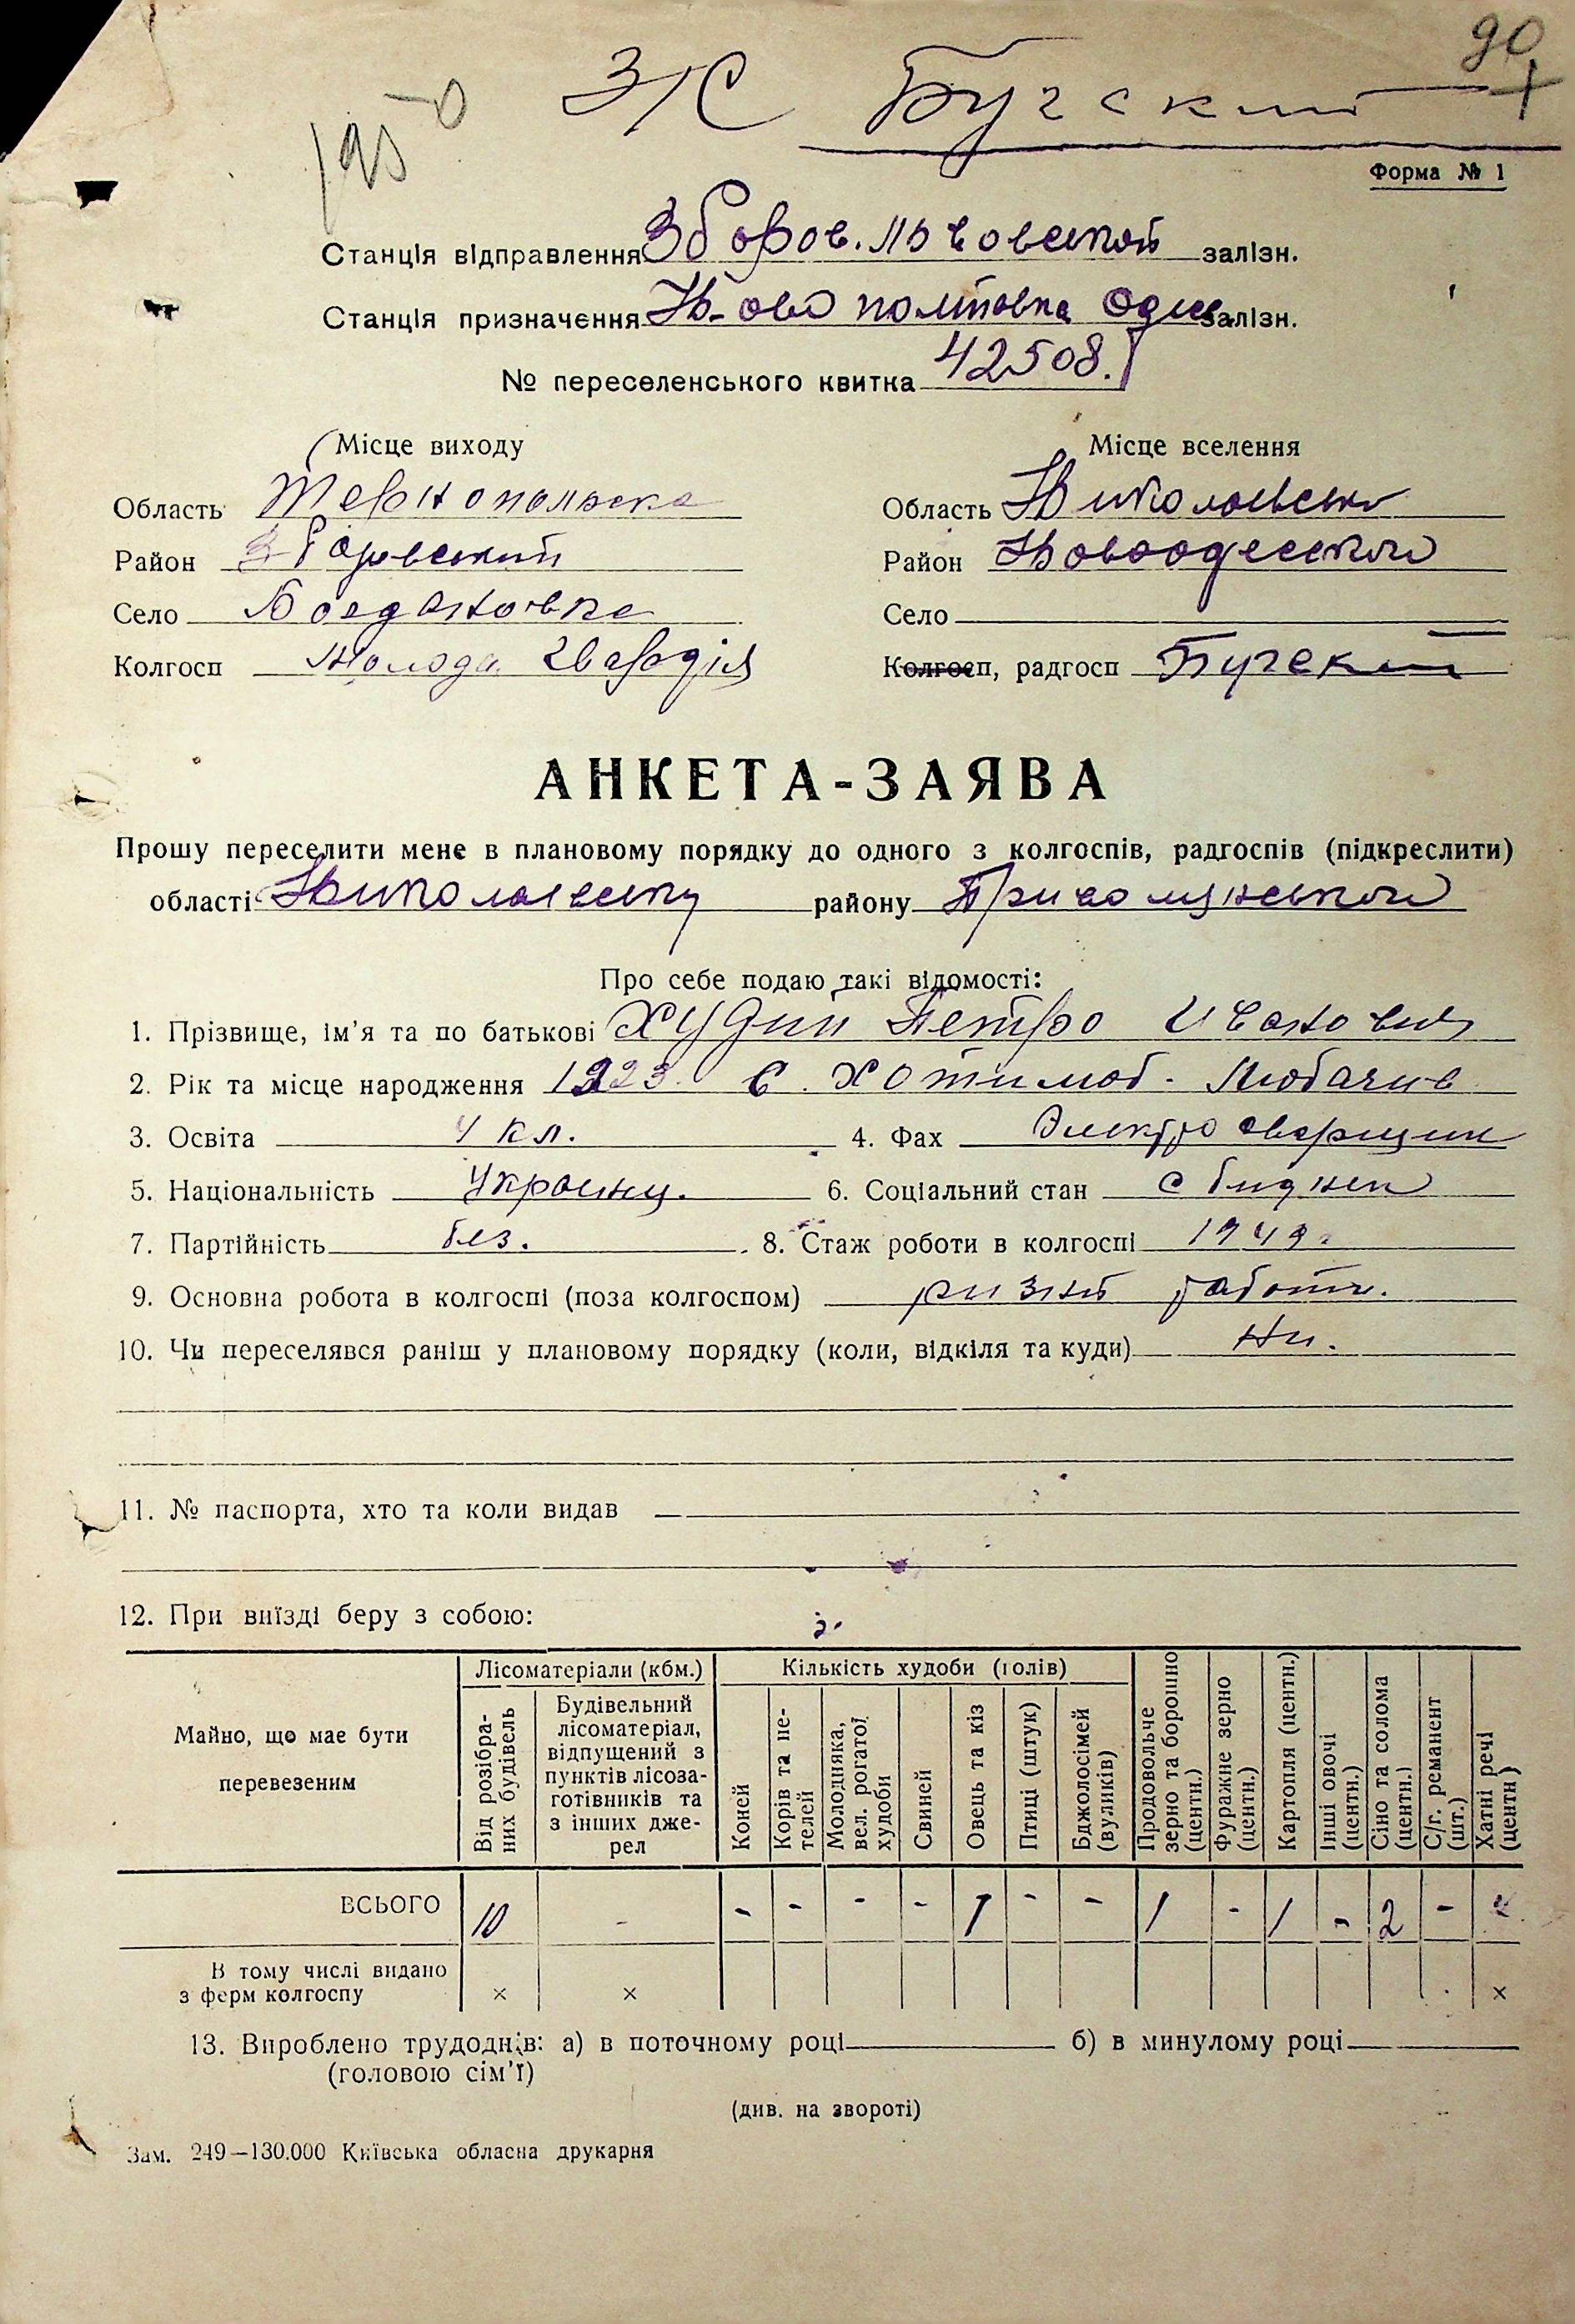 90
1950 З/С Бугский
Форма № 1
Станція відправлення Зборов. Львовской залізн.
Станція призначення Н-ово полтовка Одес. залізн.
№ переселенського квитка 42508.
Місце виходу
Область Тернопольска
Район Зборовский
Село Богдановка
Колгосп Молода Гвардія
Місце вселення
Область Николаевско
Район Новоодеского
Село
Колгосп, радгосп Бугский
АНКЕТА-ЗАЯВА
Прошу переселити мене в плановому порядку до одного з колгоспів, радгоспів (підкреслити)
області Николаевску району
Про себе подаю такі відомості:
1. Прізвище, ім’я та по батькові Худик Петро Иванович
2. Рік та місце народження 1923 с. Любачив
3. Освіта 4 кл. 4. Фах Электро сварщик
5. Національність Украинц. 6. Соціальний стан
7. Партійність без. 8. Стаж роботи в колгоспі 1949г
9. Основна робота в колгоспі (поза колгоспом) ризни работи.
10. Чи переселявся раніш у плановому порядку (коли, відкіля та куди) Ни.
11. № паспорта, хто та коли видав
12. При виїзді беру з собою:
Майно, що має бути перевезеним
Лісоматеріали (кбм.)
Від розібраних будівель
Будівельний лісоматеріал, відпущений з пунктів лісозаготівників та з інших джерел
Кількість худоби (голів)
Коней
Корів та нетелей
Молодняка, вел. рогатої худоби
Свиней
Овець та кіз
Птиці (штук)
Бджолосімей (вуликів)
Продовольче зерно та борошно (центн.)
Фуражне зерно (центн.)
Картопля (центн.)
Інші овочі (центн.)
Сіно та солома (центн.)
С/г. реманент (шт.)
Хатні речі (центн)
ВСЬОГО 10 - - - - - 1 - - 1 - 1 - 2 -
В тому числі видано з ферм колгоспу × × ×
13. Вироблено трудоднів: а) в поточному році б) в минулому році
(головою сім’ї)
(див. на звороті)
Зам. 249—130.000 Київська обласна друкарня